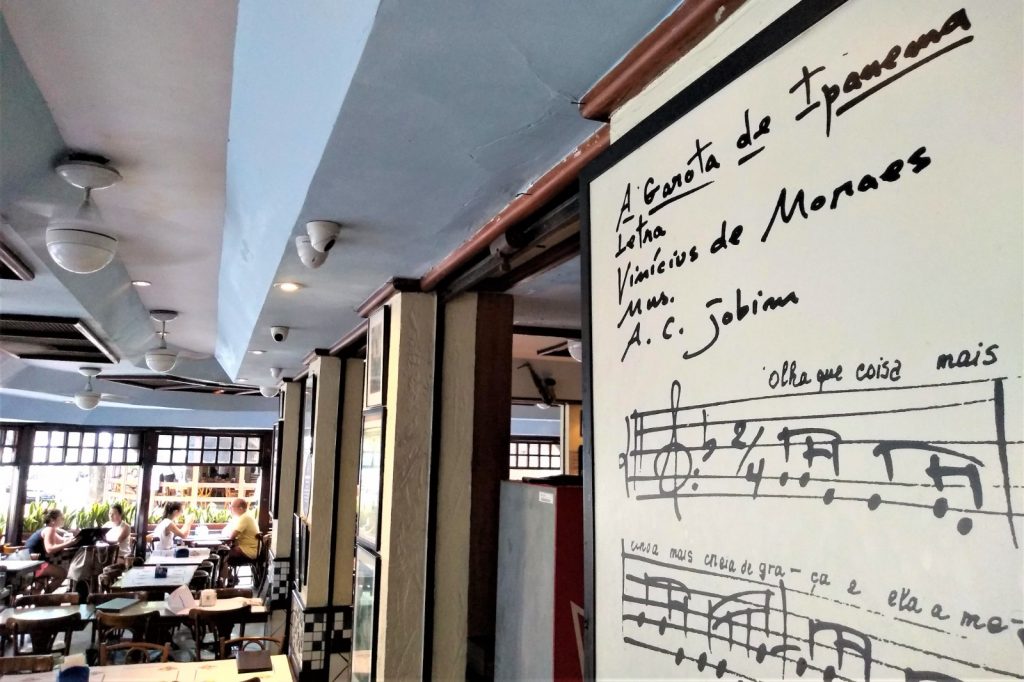 A Garota de Ipanema
Letra
Vinícius de Moraes
Mus.
A. C. Jobim
Olha que coisa mais
2/4
linda mais cheia de gra - ça e ela a me-